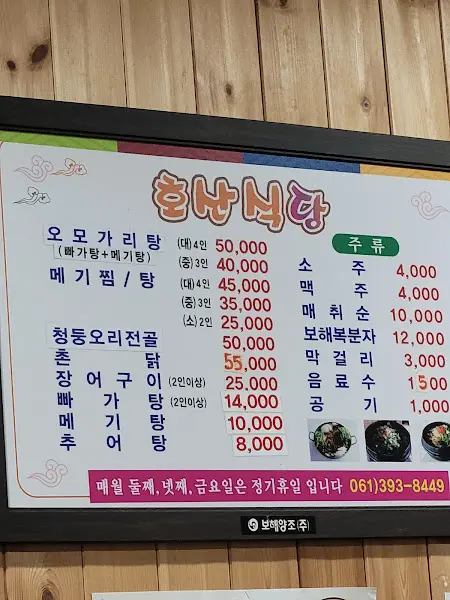 호산식당
오모가리탕 (대)4인 50,000
(빠가탕+메기탕) (중)3인 40,000
메기찜/탕 (대)4인 45,000
(중)3인 35,000
(소)2인 25,000
청둥오리전골 50,000
촌닭 55,000
장어구이 (2인이상) 25,000
빠가탕 (2인이상) 14,000
메기탕 10,000
추어탕 8,000
주류
소주 4,000
맥주 4,000
매취순 10,000
보해복분자 12,000
막걸리 3,000
음료수 1500
공기 1,000
매월 둘째, 넷째, 금요일은 정기휴일 입니다 061)393-8449
보해양조(주)